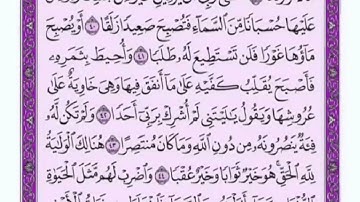 عَلَيْهَا حُسْبَانًا مِّنَ السَّمَاءِ فَتُصْبِحَ صَعِيدًا زَلَقًا ٤٠ أَوْ يُصْبِحَ
مَاؤُهَا غَوْرًا فَلَن تَسْتَطِيعَ لَهُ طَلَبًا ٤١ وَأُحِيطَ بِثَمَرِهِ
فَأَصْبَحَ يُقَلِّبُ كَفَّيْهِ عَلَىٰ مَا أَنفَقَ فِيهَا وَهِيَ خَاوِيَةٌ عَلَىٰ
عُرُوشِهَا وَيَقُولُ يَٰلَيْتَنِي لَمْ أُشْرِكْ بِرَبِّي أَحَدًا ٤٢ وَلَمْ تَكُن لَّهُ
فِئَةٌ يَنصُرُونَهُ مِن دُونِ اللَّهِ وَمَا كَانَ مُنتَصِرًا ٤٣ هُنَالِكَ الْوَلَٰيَةُ
لِلَّهِ الْحَقِّ هُوَ خَيْرٌ ثَوَابًا وَخَيْرٌ عُقْبًا ٤٤ وَاضْرِبْ لَهُم مَّثَلَ الْحَيَوٰةِ